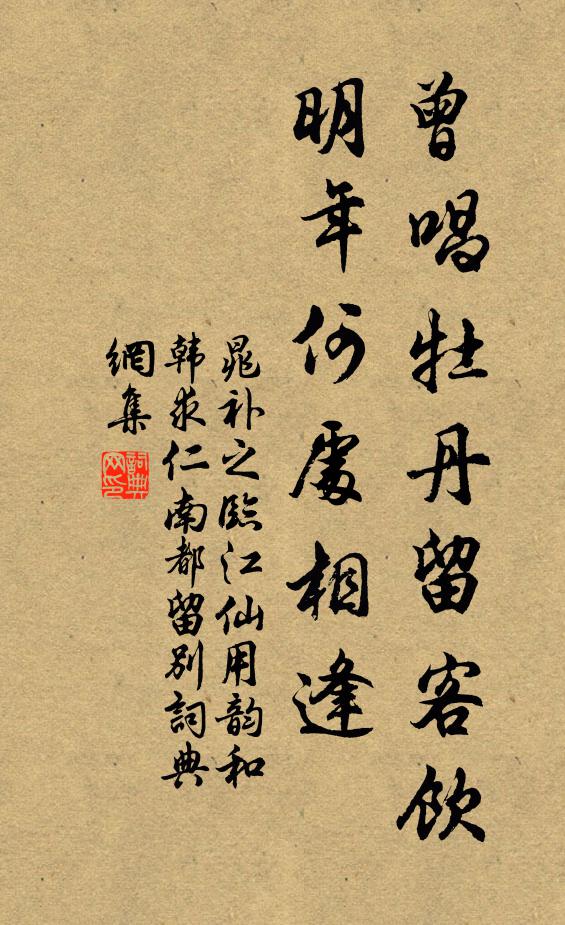 曾唱牡丹留客飲
明年何處相逢
晁补之臨江仙用韵和
韩求仁南都留别詞典
網集
詞典网印